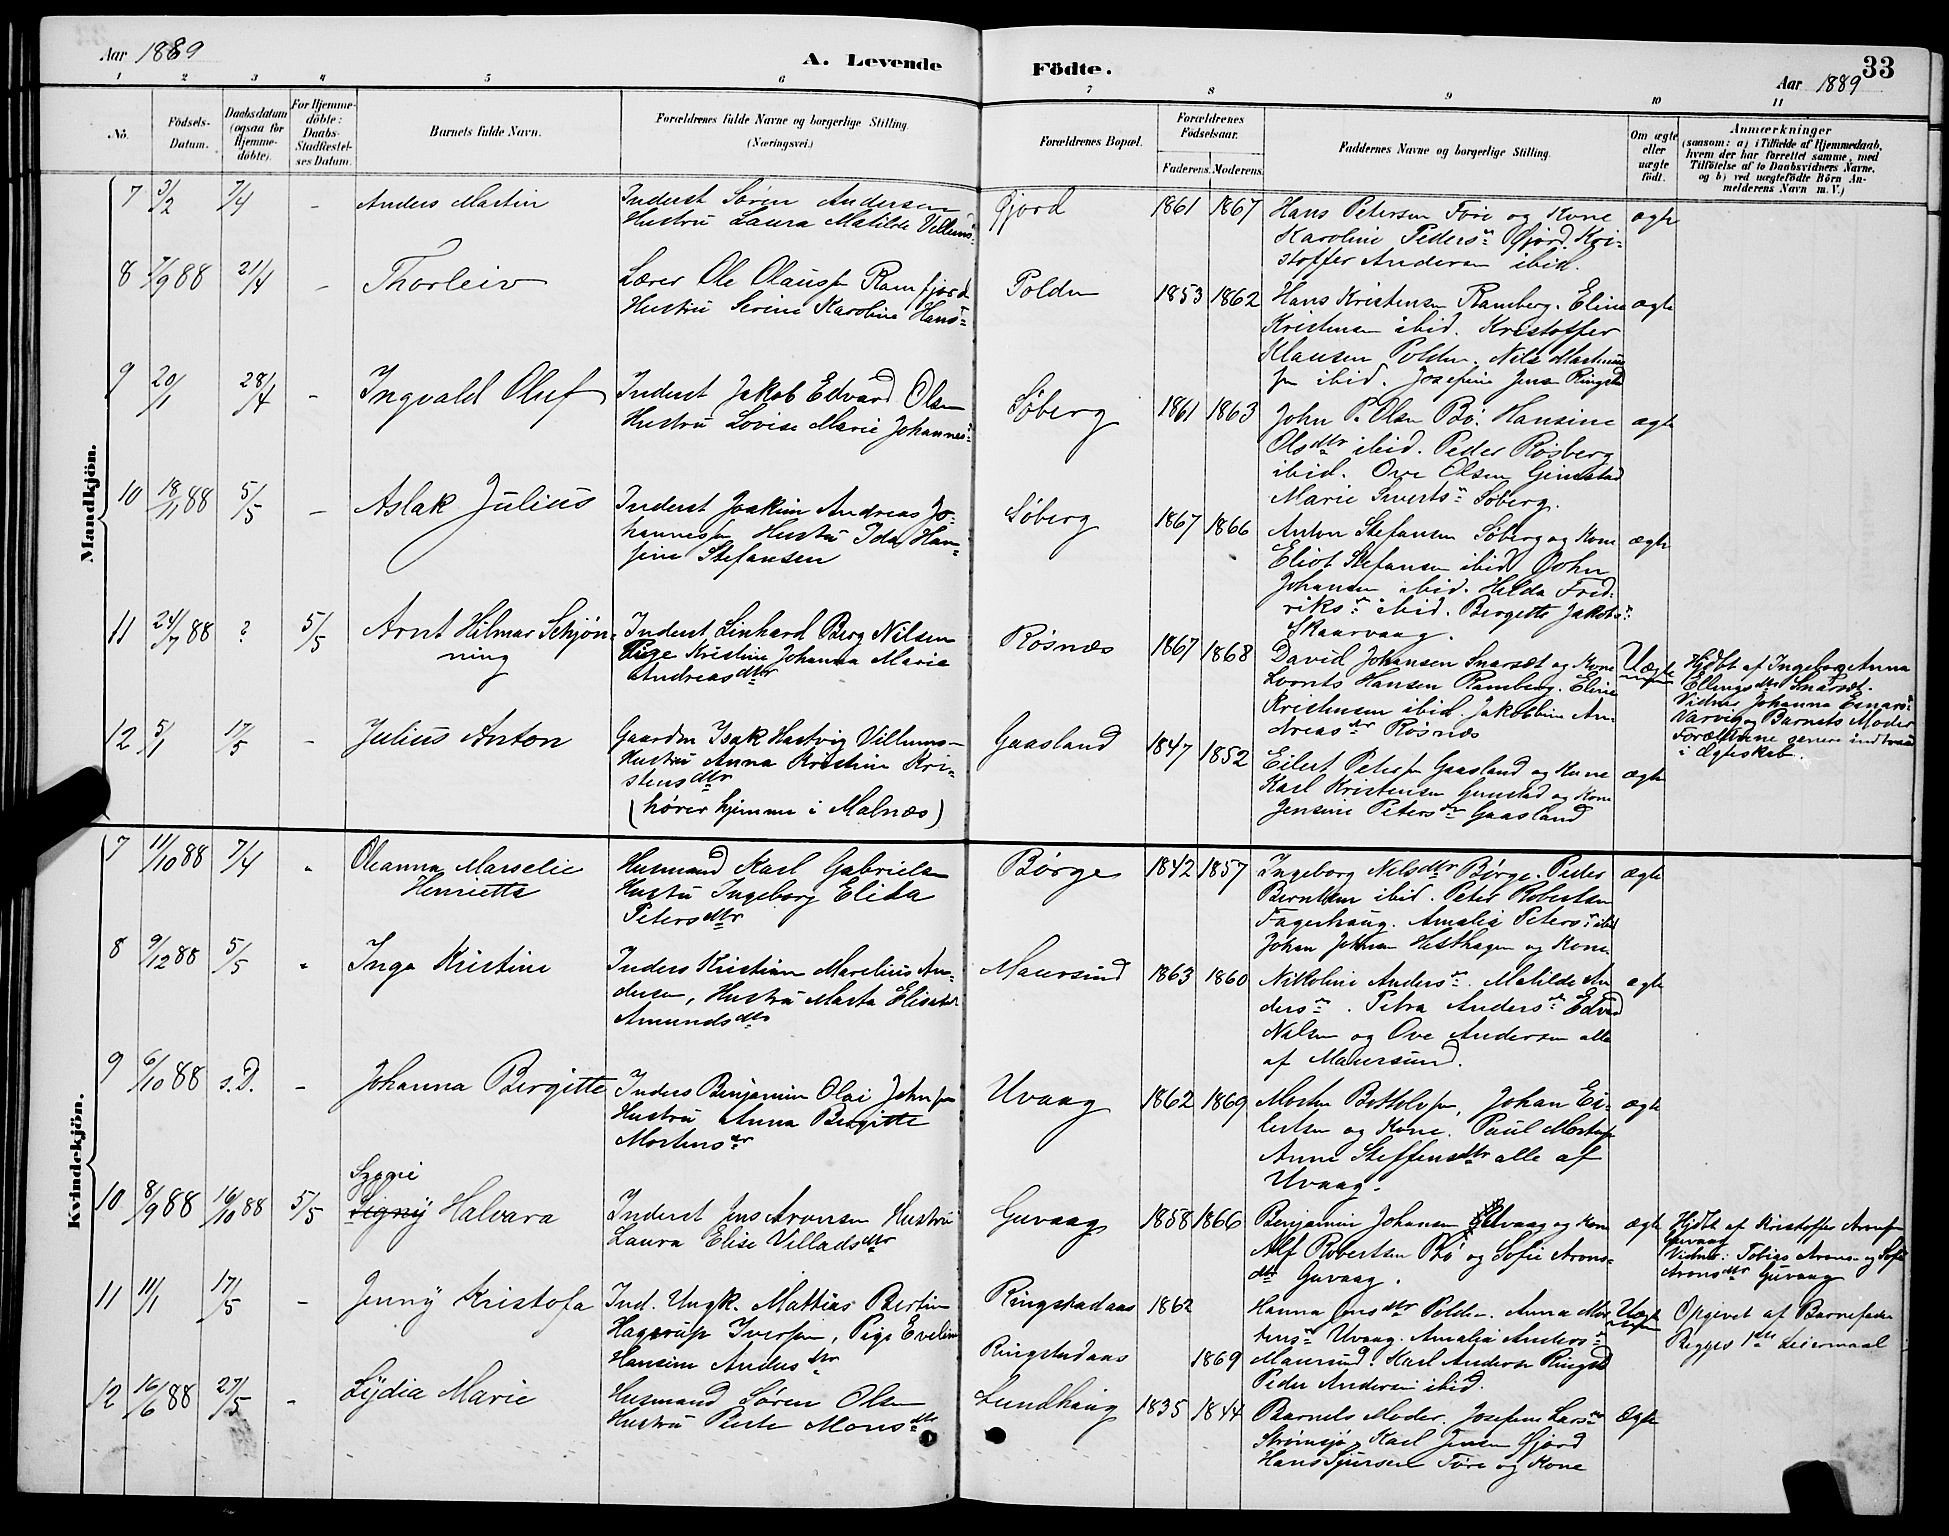 Aar 1889
A. Levende
Födte.
33
Aar 1889
1 2 3 4 5 6 7 8 9 10 11
No.
Födsels-Datum.
Daabsdatum (ogsaa for Hjemme-döbte).
For Hjemme-döbte: Daabs-Stadfæstel-ses Datum.
Barnets fulde Navn.
Forældrenes fulde Navne og borgerlige Stilling. (Næringsvei.)
Forældrenes Bopæl.
Forældrenes Födselsaar.
Faderens. Moderens.
Faddernes Navne og borgerlige Stilling.
Om ægte eller uægte födt.
Anmærkninger
(saasom: a) i Tilfælde af Hjemmedaab,
hvem der har forrettet samme, med
Tilföielse af to Daabsvidners Navne,
og b) ved uægtefödte Börn An-
melderens Navn m. V.)
Mandkjön.
7 3/2 7/4 - Anders Martin
Inderst Søren Andersen
Hustru Laura Matilde Villums
Gjord 1861 1867
Hans Petersen Føre og Kone
Karoline Peders Gjørd. Kri-
stoffer Andersen ibid.
ægte
8 7/9 88 21/4 - Thorleiv
Lærer Ole Olausen Ramfjord
Hustru Serine Karoline Hans
Polden 1853 1862
Hans Kristensen Ramberg. Eline
Kristensen ibid. Kristoffer
Klausen Polden. Nils Martinus
sen ibid. Josefine Jensen Ringstad
ægte
9 20/1 28/4 - Ingvald Oluf
Inderst Jakob Edvard Olsen
Hustru Lovise Marie Johannes
Søberg 1861 1863
John P. Olsen Bø. Hansine
Olsdtr ibid. Peder Rosberg
ibid. Ove Olsen Gimstad
Marie Siverts Søberg.
ægte
10 18/11 88 5/5 - Aslak Julius
Inderst Joakim Andreas Jo-
hannessen Hustru Ida Han-
sine Stefansen
Søberg 1867 1866
Anton Stefansen Søberg og Kone
Eliot Stefansen ibid. John
Johansen ibid. Hilda Fred-
riks ibid. Bergitte Jakobs
Skaarvaag.
ægte
11 24/7 88 ? 5/5 Arnt Hilmar Schjøn-
ning
Inderst Linhard Berg Nilsen
Pige Kristine Johanna Marie
Andreasdtr
Røsnæs 1867 1868
David Johansen Snarsæt og Kone
Lorents Hansen Ramberg. Eline
Kristensen ibid. Jakobine An-
dreasdtr Røsnæs
Uægte
Hjdbt af Ingeborg Anna
Ellingsdtr Snarsæt.
Vidner Johanna Einars
Varvig og Barnets Moder
Forældrene senere indtraadt
i Ægteskab.
12 5/1 17/5 - Julius Anton
Gaardm Isak Hartvig Villums-
Hustru Anna Kristine Kri-
stensdtr
(hører hjemme i Malnæs)
Gaasland 1847 1852
Eilert Petersen Gaasland og Kone
Karl Kristensen Gimstad og Kone
Jensine Peters Gaasland
ægte
Kvindekjön.
7 11/10 88 7/4 - Oleanna Marselie
Henriette
Husmand Karl Gabrielsen
Hustru Ingeborg Elida
Petersdtr
Børge 1842 1857
Ingeborg Nilsdtr Børge. Peder
Berntsen ibid. Peter Robertsen
Fagerhaug. Amalia Peters ibid
Johan Johnsen Hesthagen og Kone
ægte
8 9/12 88 5/5 - Inga Kristine
Inders Kristian Marelius An-
dersen, Hustru Marta Elisabet
Amundsdtr
Maursund 1863 1860
Nikoline Anders. Matilde An
ders. Petra Anders Edvard
Nilsen og Ove Andersen alle
af Maursund.
ægte
9 6/10 88 s.D. - Johanna Bergitte
Inders Benjamin Olai Johnsen
Hustru Anna Bergitte
Mortens
Uvaag 1862 1869
Morten Bottolvsen, Johan Ei-
lertsen og Kone. Paul Mortens
Anne Steffensdtr alle af
Uvaag.
ægte
10 8/9 88 16/10 88 5/5 Syggie
Signy Halvara
Inderst Jens Aronsen Hustru
Laura Elise Villadsdtr
Guvaag 1858 1866
Benjamin Johansen Uvaag og Kone
Alf Robertsen Bø og Sofie Arons-
dtr Guvaag.
ægte
Hjdbt af Kristoffer Aronsen
Guvaag
Vidner: Tobias Arons- og Sofie
Aronsdtr Guvaag
11 11/1 17/5 - Jenny Kristofa
Ind. Ungk. Mattias Bertin
Hagerup Iversen, Pige Eveline
Hansine Andersdtr
Ringstadaas 1862
Ringstadaas 1869
Hanna Jensdtr Polden. Anna Mor
tens Uvaag. Amalia Anders
Maursund. Karl Andersen Ringstad
Peder Andersen ibid.
Uægte
Opgivet af Barnefader
Begges 1ste Leiermaal
12 16/6 88 27/5 - Lydia Marie
Husmand Søren Olsen
Hustru Berte Monsdtr
Lundhaug 1835 1844
Barnets Moder. Josefine Lars
Strømsjø. Karl Jensen Gjord
Hans Sjursen Føre og Kone
Ægte